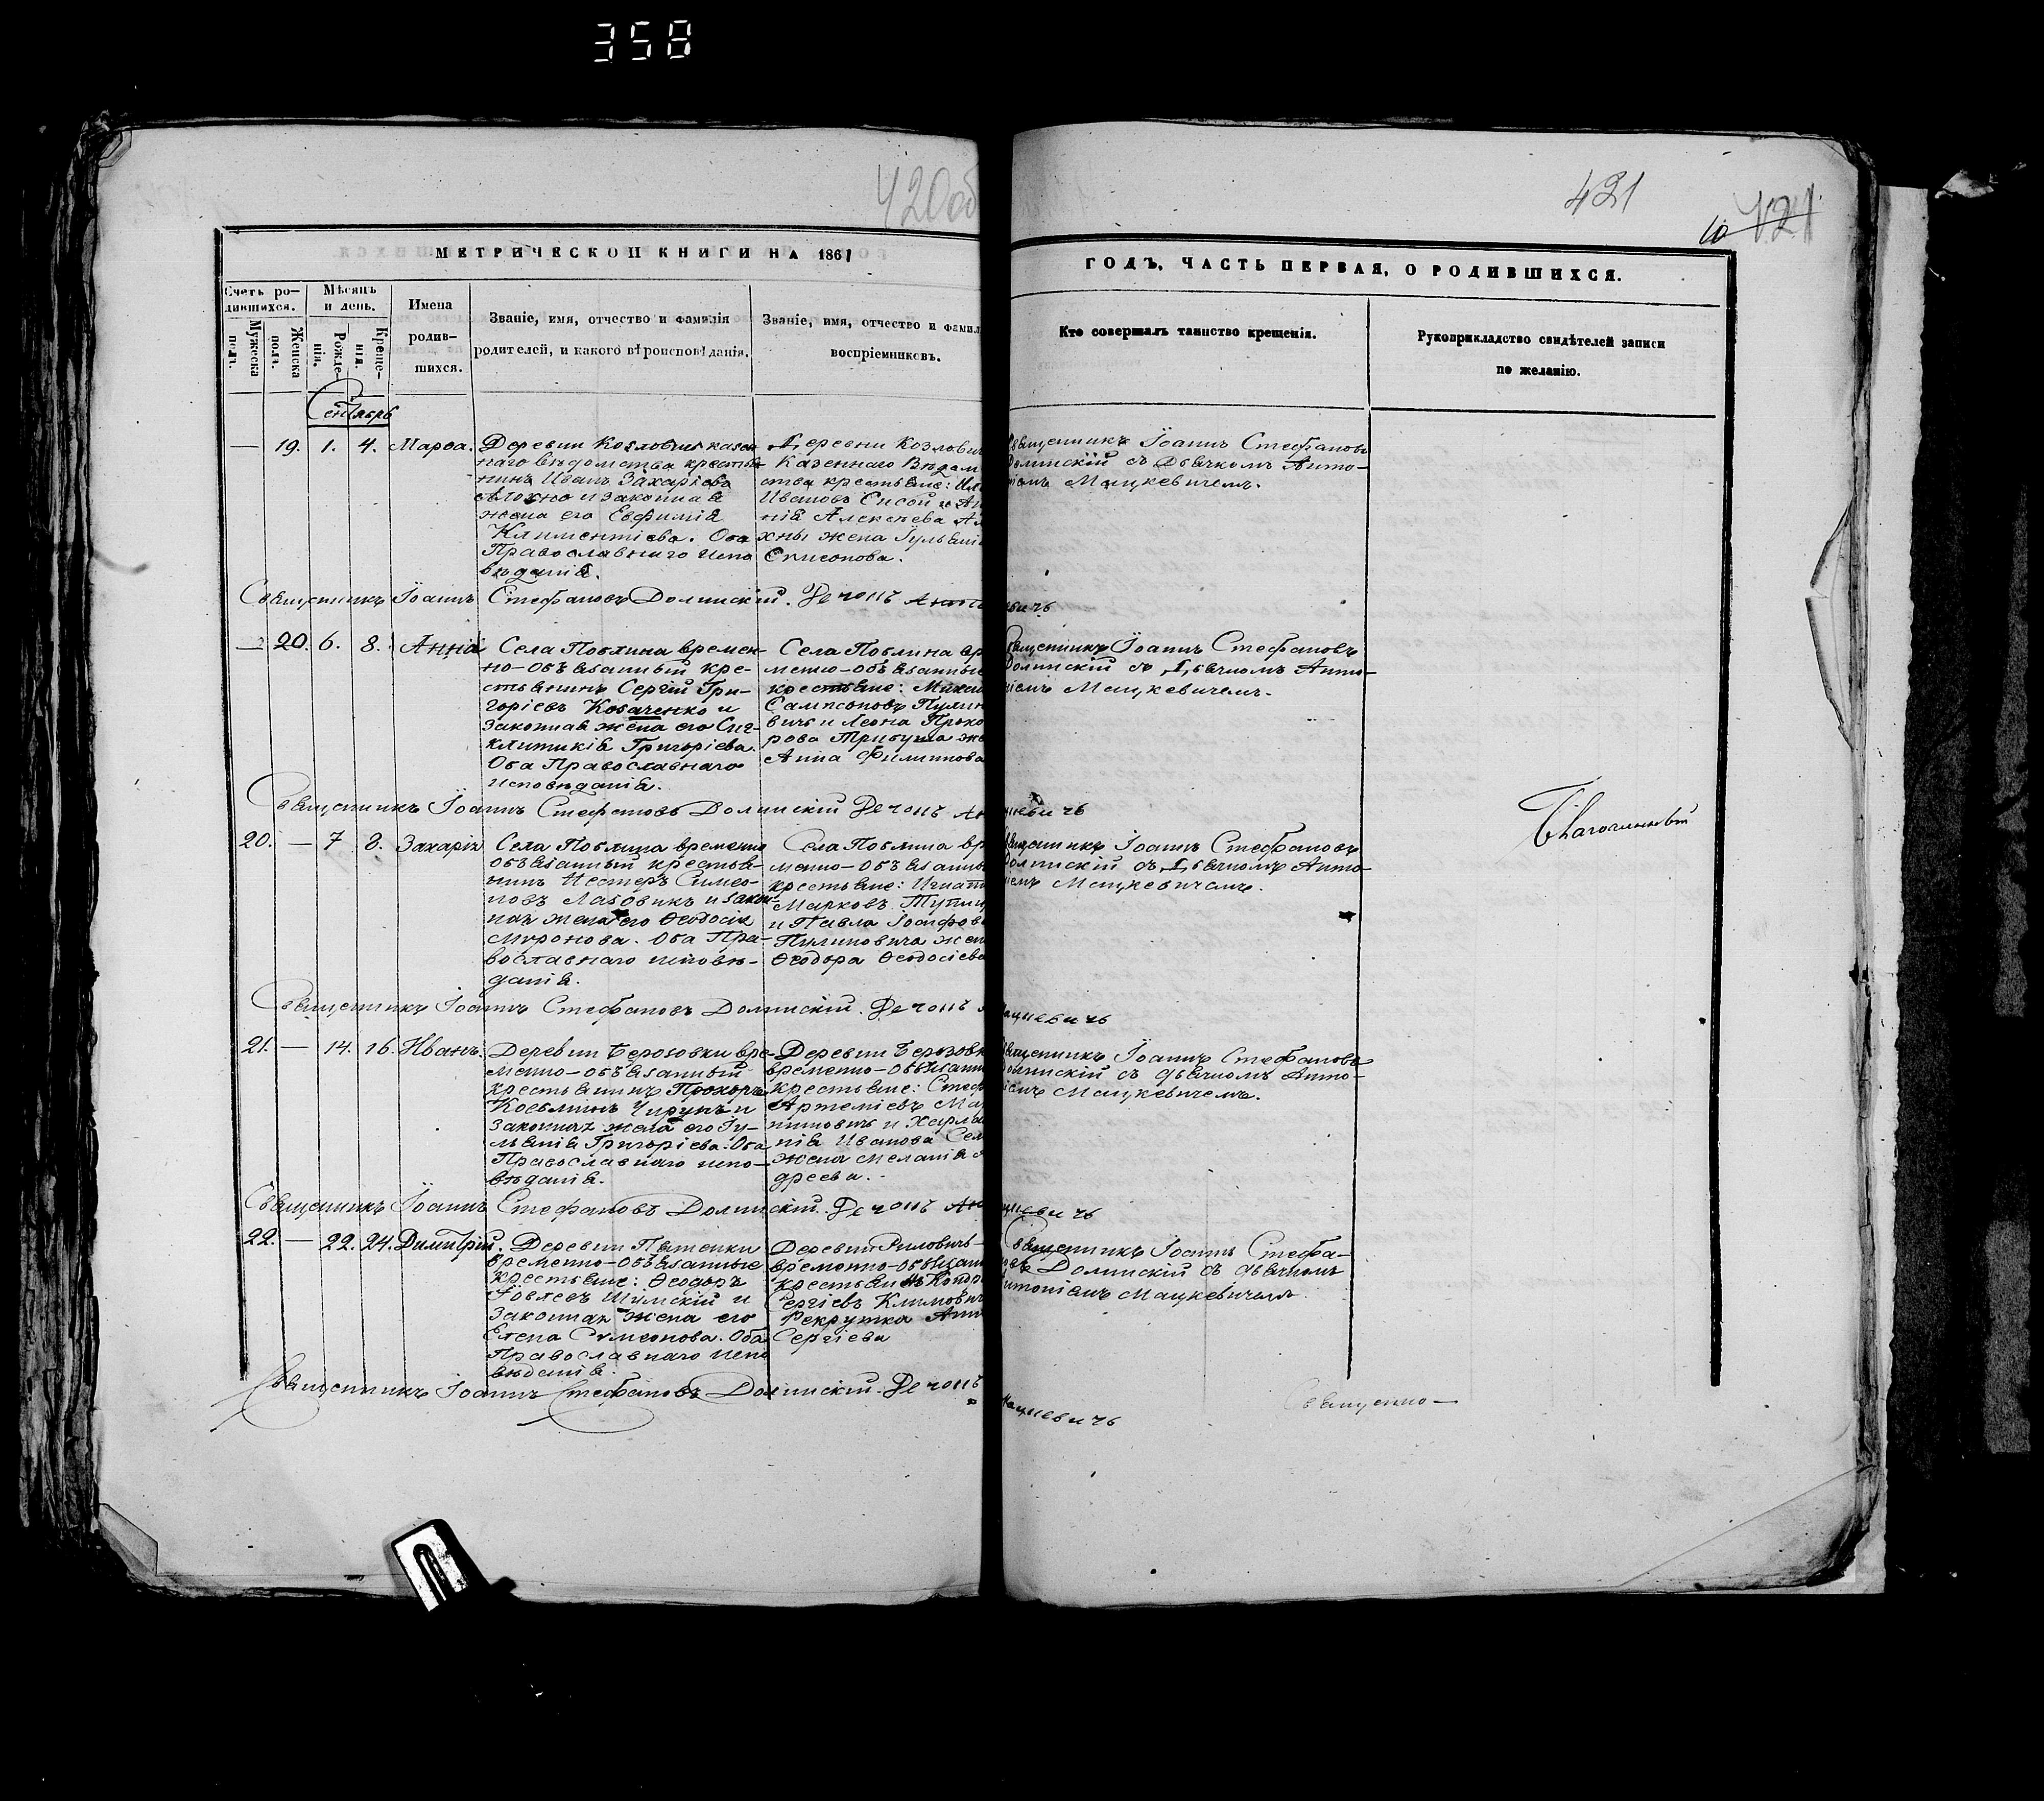 358
420об
421
10 421
МЕТРИЧЕСКОЙ КНИГИ НА 1861
ГОДЪ, ЧАСТЬ ПЕРВАЯ, О РОДИВШИХСЯ.
Счетъ ро-
дившихся.
Мужеска
полъ.
Женска
полъ.
Мѣсяцъ
и день.
Рожде-
нія.
Креще-
нія.
Имена
родив-
шихся.
Званіе, имя, отчество и фамилія
родителей, и какого вѣроисповѣданія.
Званіе, имя, отчество и фамил
воспріемниковъ.
Кто совершалъ таинство крещенія.
Рукоприкладство свидѣтелей записи
по желанію.
Сентябрь
— 19. 1. 4. Марѳа.
Деревни Козловичъ казен
наго вѣдомства крестья-
нинъ Иванъ Захаріевъ
и законная
жена его Евфимія
Климентіева. Оба
Православнаго испо
вѣданія.
Деревни Козлович
Казеннаго Вѣдом
ства крестьяне:
Ивановъ Сысой и Ан
нія Алексѣева
хны жена Іульяні
Священникъ Іоаннъ Стефановъ
Долинскій съ Дьячкомъ Анто-
ніемъ Мацкевичемъ.
Священникъ Іоаннъ Стефановъ Долинскій.
евичъ
— 20. 6. 8. Анна
Села Поблина времен-
но-обязанный кре-
стьянинъ Сергій Гри-
горіевъ Козаченко и
законная жена его Син-
клитикія Григоріева.
Оба Православнаго
исповѣданія.
Села Поблина вр
менно-обязанные
крестьяне:
Сампсоновъ Пулин
вичъ и Леона Прохо
рова Трибуша же
Анна Филиппова
Священникъ Іоаннъ Стефановъ
Долинскій съ Дьячкомъ Анто-
ніемъ Мацкевичемъ.
Священникъ Іоаннъ Стефановъ Долинскій
кевичъ
Благочинный
20. — 7 8. Захарія
Села Поблина временно
обязанный крестья-
нинъ Нестеръ Симео-
новъ Лазовикъ и закон-
ная жена его Ѳеодосія
Миронова. Оба Пра-
вославнаго исповѣ-
данія.
Села Поблина вр
менно-обязанны
крестьяне: Игнат
Марковъ
и Павла Іосифов
Пулиновича жен
Ѳеодора Ѳеодосіева
Священникъ Іоаннъ Стефановъ
Долинскій съ Дьячкомъ Анто-
ніемъ Мацкевичемъ.
Священникъ Іоаннъ Стефановъ Долинскій.
ацкевичъ
21. — 14. 16. Иванъ.
Деревни Березовки вре-
менно-обязанный
крестьянинъ Прохоръ
Косьминъ Чирунъ и
законная жена его Іу-
льянія Григоріева. Оба
Православнаго испо-
вѣданія.
Деревни Березовк
временно-обязанн
крестьяне: Стеф
Артеміевъ
и Харла
нія Иванова
жена Меланія
дреева.
Священникъ Іоаннъ Стефановъ
Долинскій съ дьячкомъ Анто-
ніемъ Мацкевичемъ.
Священникъ Іоаннъ Стефановъ Долинскій.
кевичъ
22. — 22. 24. Димитрій.
Деревни
временно-обязанные
крестьяне: Ѳеодоръ
Шумскій и
Законная жена его
Елена Симеонова. Оба
Православнаго испо
вѣданія.
Деревни Риловичъ
временно-обязан
крестьянинъ
Сергіевъ Климович
Рекрутка Анн
Сергіева
Священникъ Іоаннъ Стефа-
новъ Долинскій съ дьячкомъ
Антоніемъ Мацкевичемъ.
Священникъ Іоаннъ Стефановъ Долинскій.
ацкевичъ
Священно-